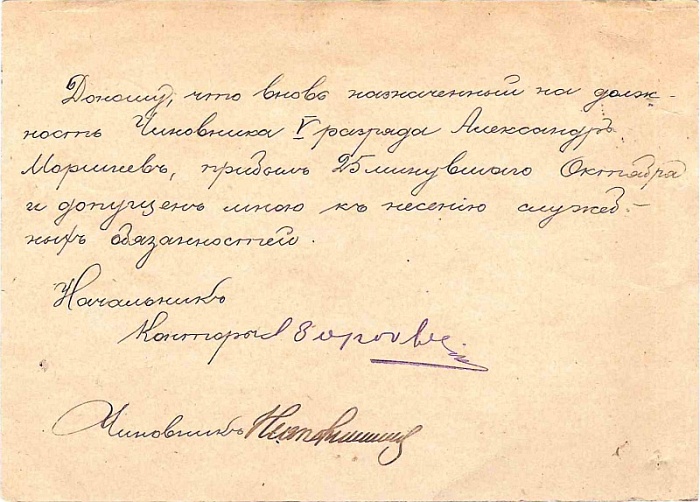 Доношу, что вновь назначенный на долж-
ность Чиновника V разряда Александръ
прибылъ 25 минувшаго Октября
и допущенъ мною къ несенію служеб-
ныхъ обязанностей.
Начальникъ
Конторы
Чиновникъ